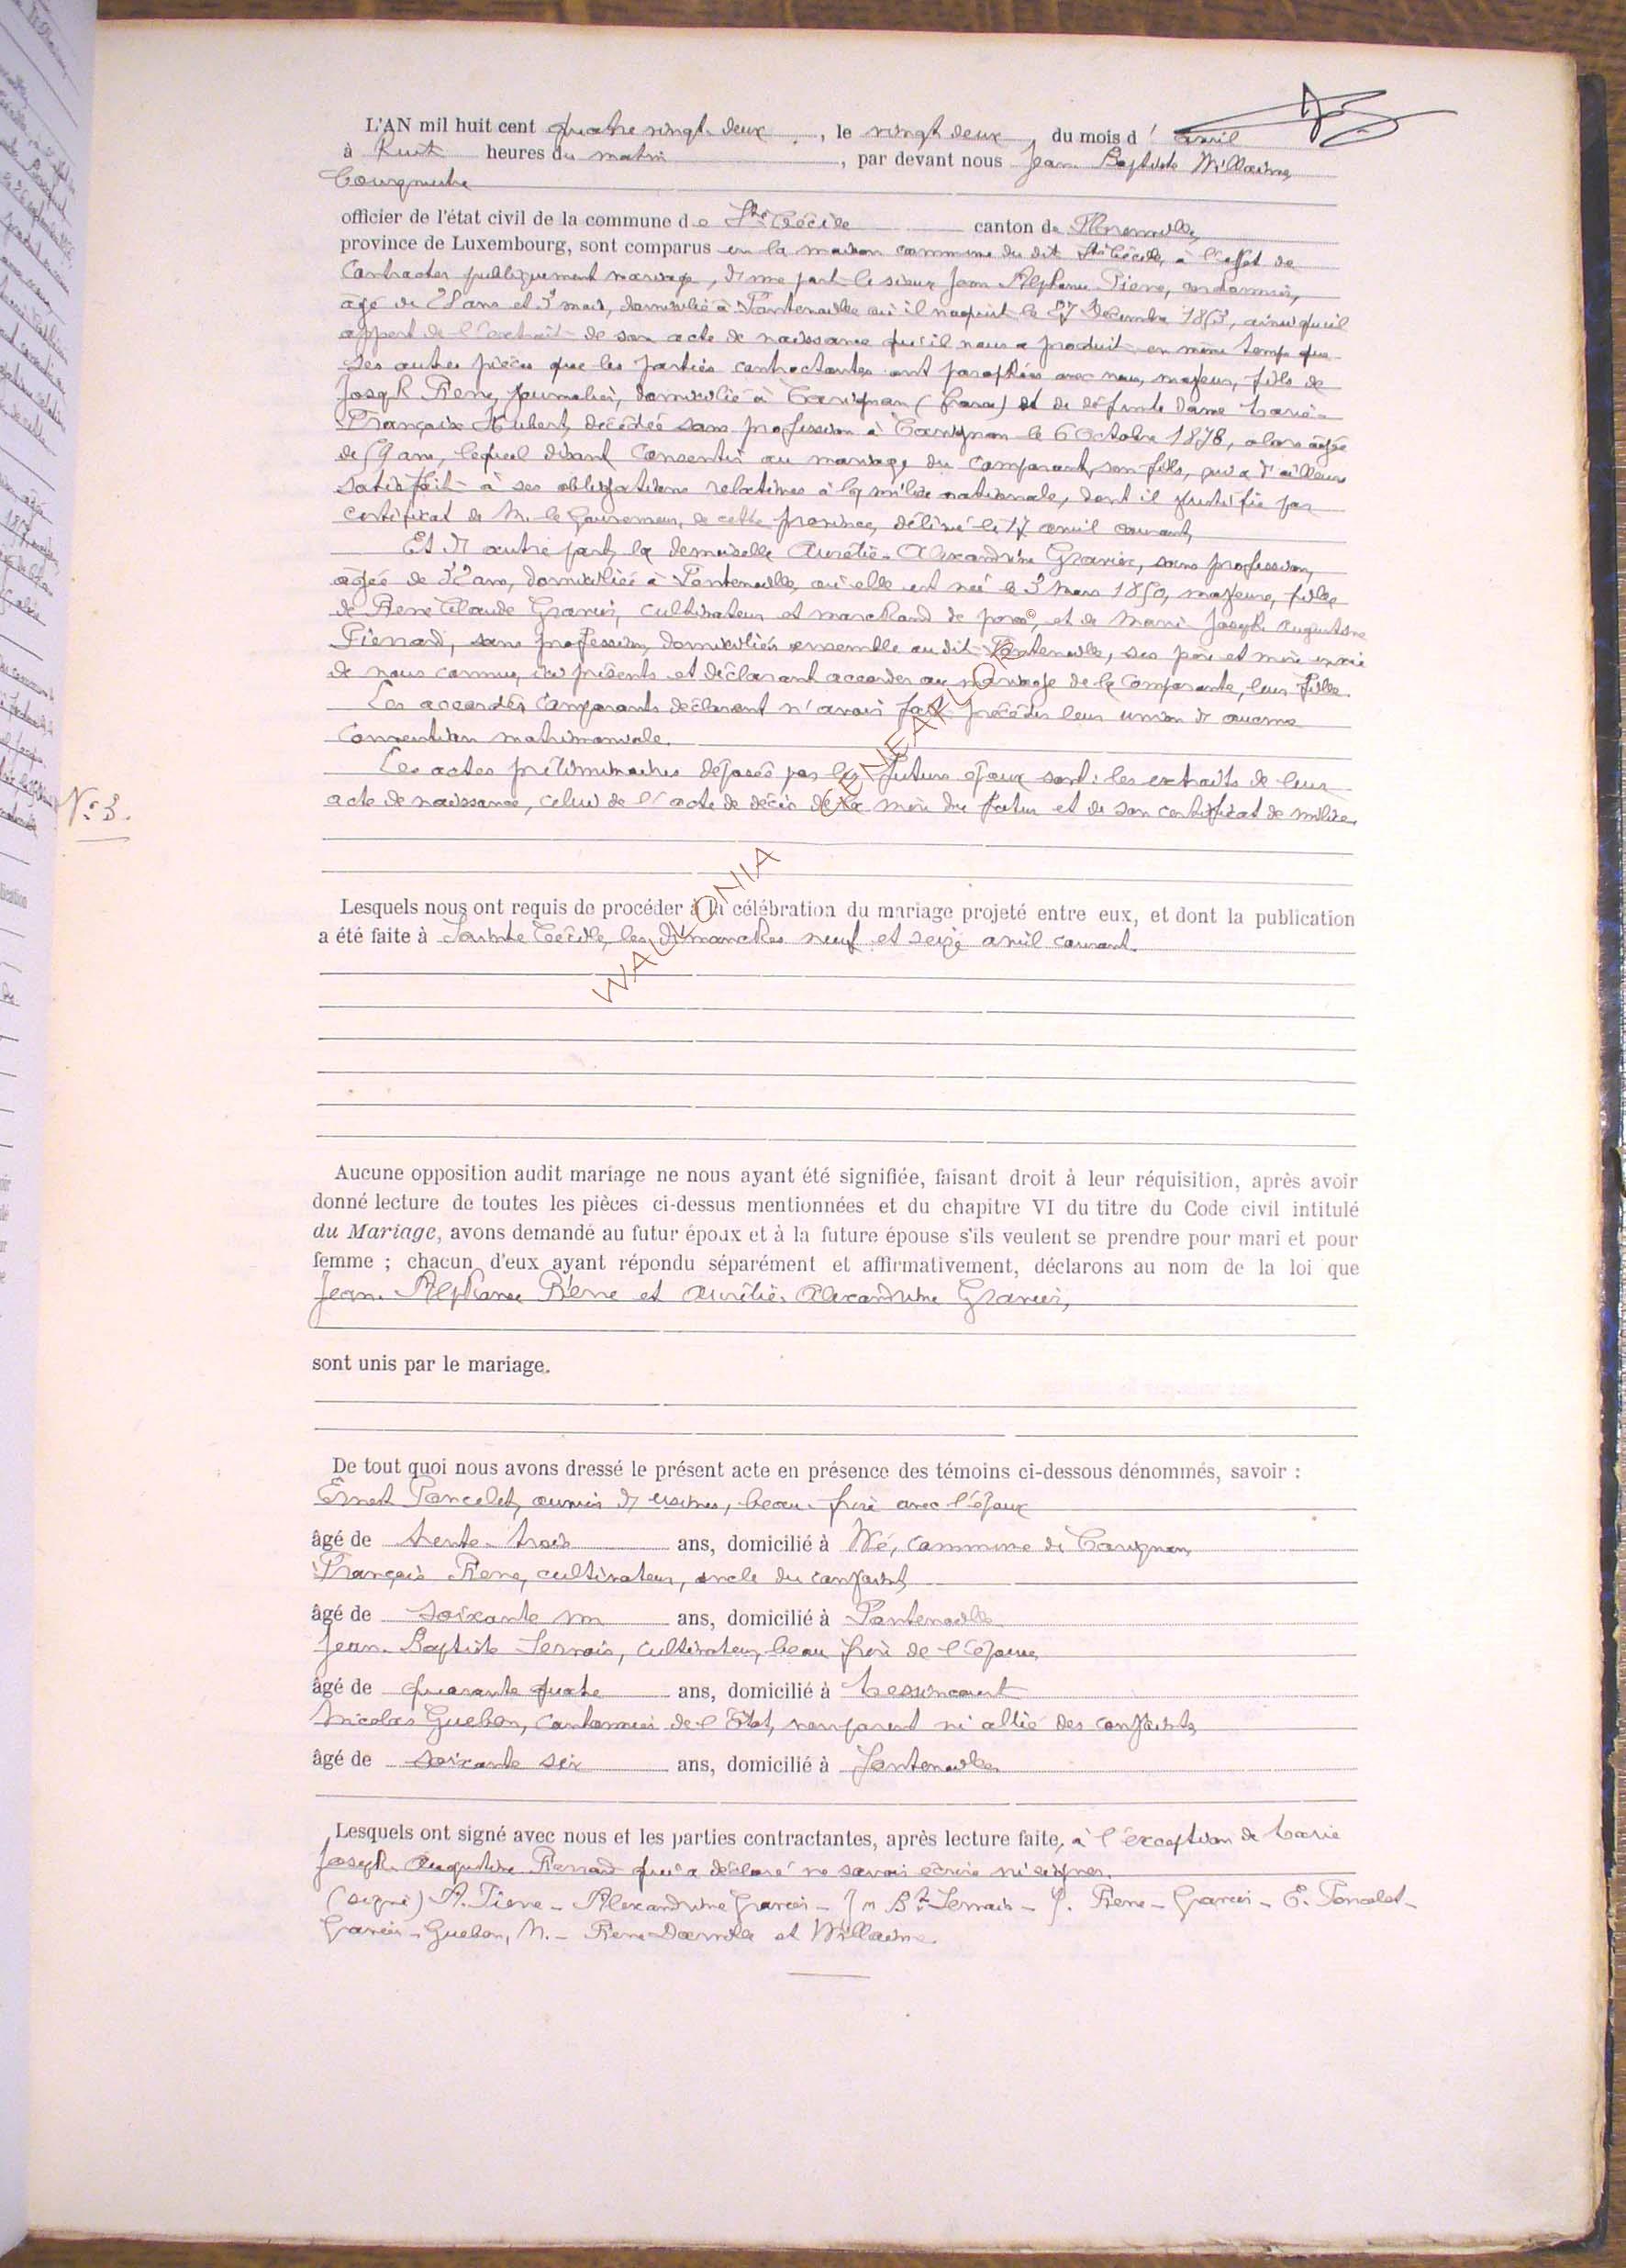 L'AN mil huit cent quatre vingt deux, le vingt deux, du mois d'avril
à huit heures du matin, par devant nous Jean Baptiste Willaime
Bourgmestre
officier de l'état civil de la commune de Ste Cécile canton de Florenville,
province de Luxembourg, sont comparus en la maison commune du dit Ste Cécile, à l'effet de
contracter publiquement mariage, d'une part le sieur Jean Alphonse Pierre, cordonnier,
âgé de 28 ans et 3 mois, domicilié à Fontenoille où il naquit le 27 Décembre 1853, ainsi qu'il
appert de l'extrait de son acte de naissance qu'il nous a produit en même temps que
les autres pièces que les parties contractantes ont paraphées avec nous, majeur, fils de
Joseph Pierre, journalier, domicilié à Carignan (france) et de défunte dame Marie
Françoise Hubert, décédée sans profession à Carignan le 6 Octobre 1878, alors âgée
de 59 ans, lequel disant consentir au mariage du comparant, son fils, qui a d'ailleurs
satisfait à ses obligations relatives à la milice nationale, dont il justifie par
certificat de M. le Gouverneur, de cette province, délivré le 17 avril courant,
Et d'autre part, la demoiselle Aurélie-Alexandrine Garcier, sans profession,
âgée de 32 ans, domiciliée à Fontenoille, où elle est née le 3 Mars 1850, majeure, fille
de Pierre Claude Garcier, cultivateur et marchand de porcs, et de Marie Joseph Augustine
Pierrard, sans profession, domiciliés ensemble au dit Fontenoille, ses père et mère
de nous connus, ici présents et déclarant accorder au mariage de la comparante, leur fille.
Les accordés comparants déclarent n'avoir fait précéder leur union d'aucune
Convention matrimoniale.
Les actes préliminaires déposés par les futurs époux sont: les extraits de leur
N° 3.
acte de naissance, celui de l'acte de décès de la mère du futur et de son certificat de milice.
© WALLONIA GENEALOGY
Lesquels nous ont requis de procéder à la célébration du mariage projeté entre eux, et dont la publication
a été faite à Sainte Cécile, les dimanches neuf et seize avril courant.
Aucune opposition audit mariage ne nous ayant été signifiée, faisant droit à leur réquisition, après avoir
donné lecture de toutes les pièces ci-dessus mentionnées et du chapitre VI du titre du Code civil intitulé
du Mariage, avons demandé au futur époux et à la future épouse s'ils veulent se prendre pour mari et pour
femme ; chacun d'eux ayant répondu séparément et affirmativement, déclarons au nom de la loi que
Jean Alphonse Pierre et Aurélie Alexandrine Garcier,
sont unis par le mariage.
De tout quoi nous avons dressé le présent acte en présence des témoins ci-dessous dénommés, savoir :
Ernest Poncelet, ouvrier d'usines, beau-frère avec l'époux
âgé de trente-trois ans, domicilié à Wé, commune de Carignan,
François Pierre, cultivateur, oncle du conjoint
âgé de soixante un ans, domicilié à Fontenoille
Jean-Baptiste Servais, cultivateur, beau frère de l'épouse
âgé de quarante quatre ans, domicilié à Messincourt
Nicolas Guebon, cantonnier de l'Etat, non parent ni allié des conjoints
âgé de soixante six ans, domicilié à Fontenoille
Lesquels ont signé avec nous et les parties contractantes, après lecture faite, à l'exception de Marie
Joseph Augustine Pierrard qui a déclaré ne savoir écrire ni signer.
(signé) A. Pierre - Alexandrine Garcier - Jn Bte Servais - J. Pierre - Garcier - E. Poncelet -
Garcier - Guebon, N. - Pierre et Willaime.